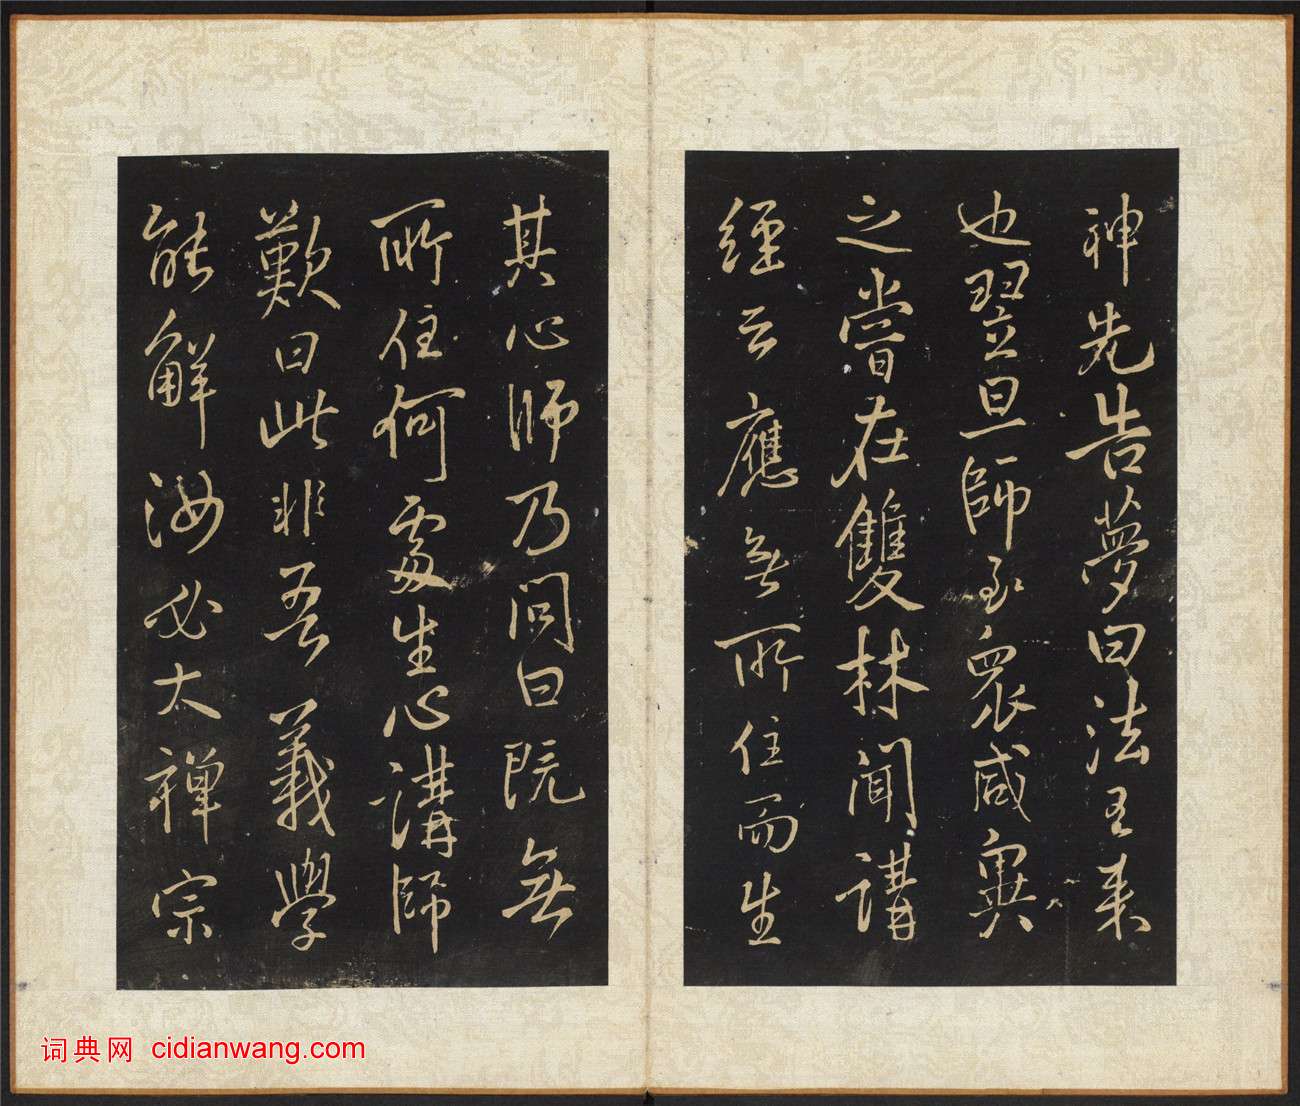 神先告夢曰法王來
也翌旦師至衆咸異
之嘗在雙林聞講
經云應無所住而生
其心師乃問曰既無
所住何處生心講師
歎曰此非吾義學
能解汝必太禪宗
词典网 cidianwang.com